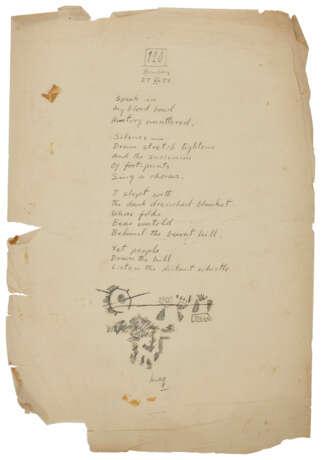 120
Bombay
27
Speak in
my blood bowl
History muttered.
Silence —
Drum stretch tightens
And the succession
Of footprints
Sing a chorus.
I slept with
The dark drenched blanket
Whose folds
Bear untold
Behind the burnt hill.
Yet people
Down the hill
Listen the distant whistle